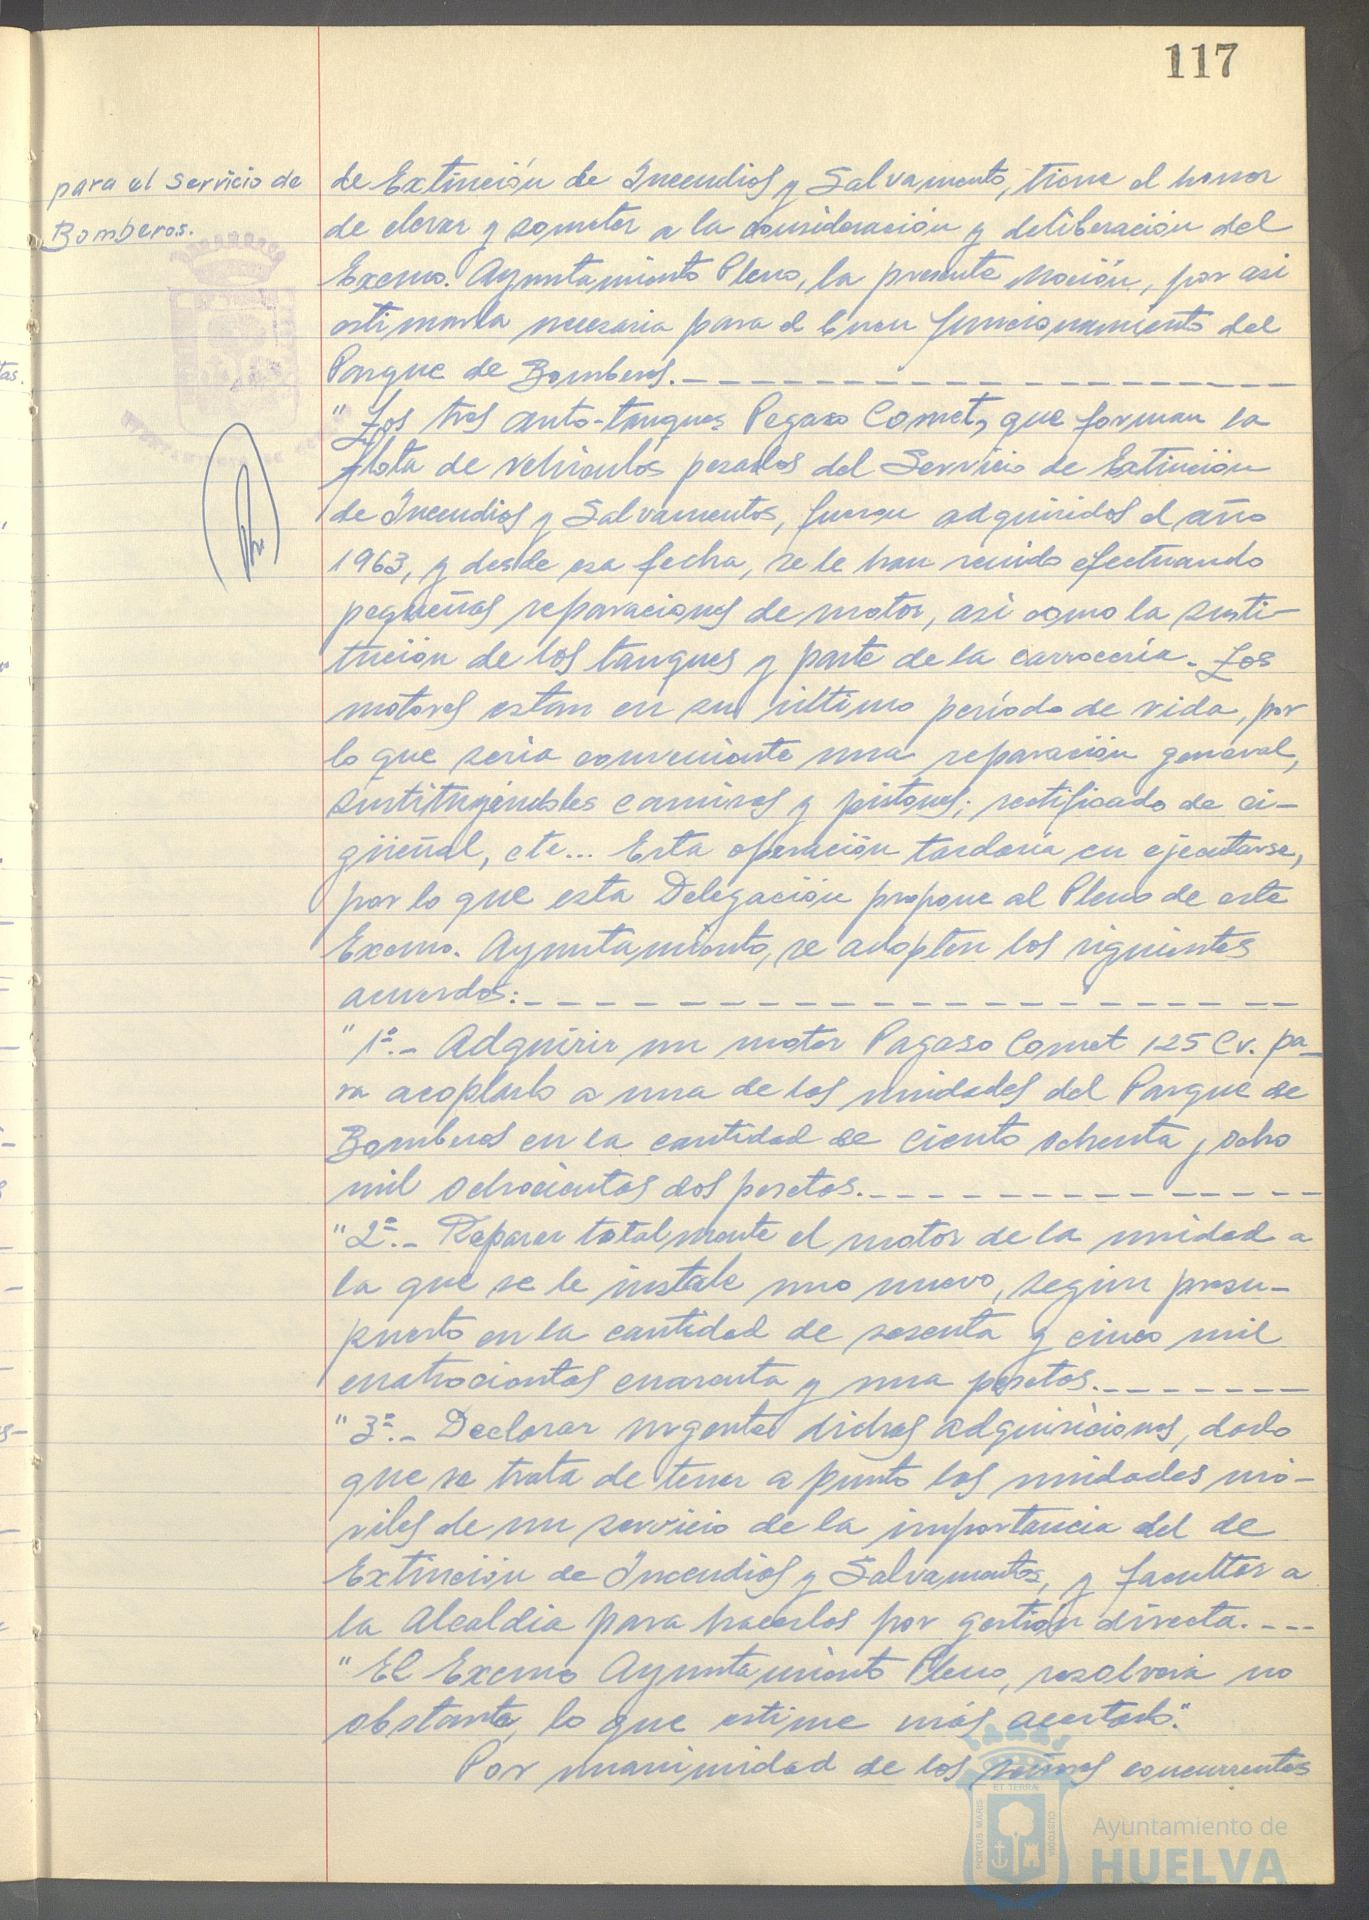 117
para el servicio de
Bomberos.
de Extinción de Incendios y Salvamento, tiene el honor
de elevar y someter a la consideración y deliberación del
Excmo. Ayuntamiento Pleno, la presente Moción, por asi
estimarla necesaria para el buen funcionamiento del
Parque de Bomberos.
"Los tres auto-tanques Pegaso Comet, que forman la
flota de vehículos pesados del Servicio de Extinción
de Incendios y Salvamentos, fueron adquiridos el año
1963, y desde esa fecha, se le han venido efectuando
pequeñas reparaciones de motor, asi como la susti-
tución de los tanques y parte de la carrocería. Los
motores estan en su último período de vida, por
lo que sería conveniente una reparación general,
sustituyéndoles camisas y pistones; rectificado de ci-
güeñal, etc... Esta operación tardaría en ejecutarse,
por lo que esta Delegación propone al Pleno de este
Excmo. Ayuntamiento, se adopten los siguientes
acuerdos:
"1º.- Adquirir un motor Pagaso Comet 125 Cv. pa-
ra acoplarlo a una de las unidades del Parque de
Bomberos en la cantidad de ciento ochenta y ocho
mil ochocientas dos pesetas.
"2º.- Reparar totalmente el motor de la unidad a
la que se le instale uno nuevo, segun presu-
puesto en la cantidad de sesenta y cinco mil
cuatrocientas cuarenta y una pesetas.
"3º.- Declarar urgentes dichas adquisiciones, dado
que se trata de tener a punto las unidades mó-
viles de un servicio de la importancia del de
Extinción de Incendios y Salvamentos, y facultar a
la Alcaldía para hacerlas por gestión directa.
"El Excmo Ayuntamiento Pleno, resolverá no
obstante, lo que estime más acertado."
Por unanimidad de los señores concurrentes
PORTUS MARIS
ET TERRÆ
CUSTODIA
Ayuntamiento de
HUELVA